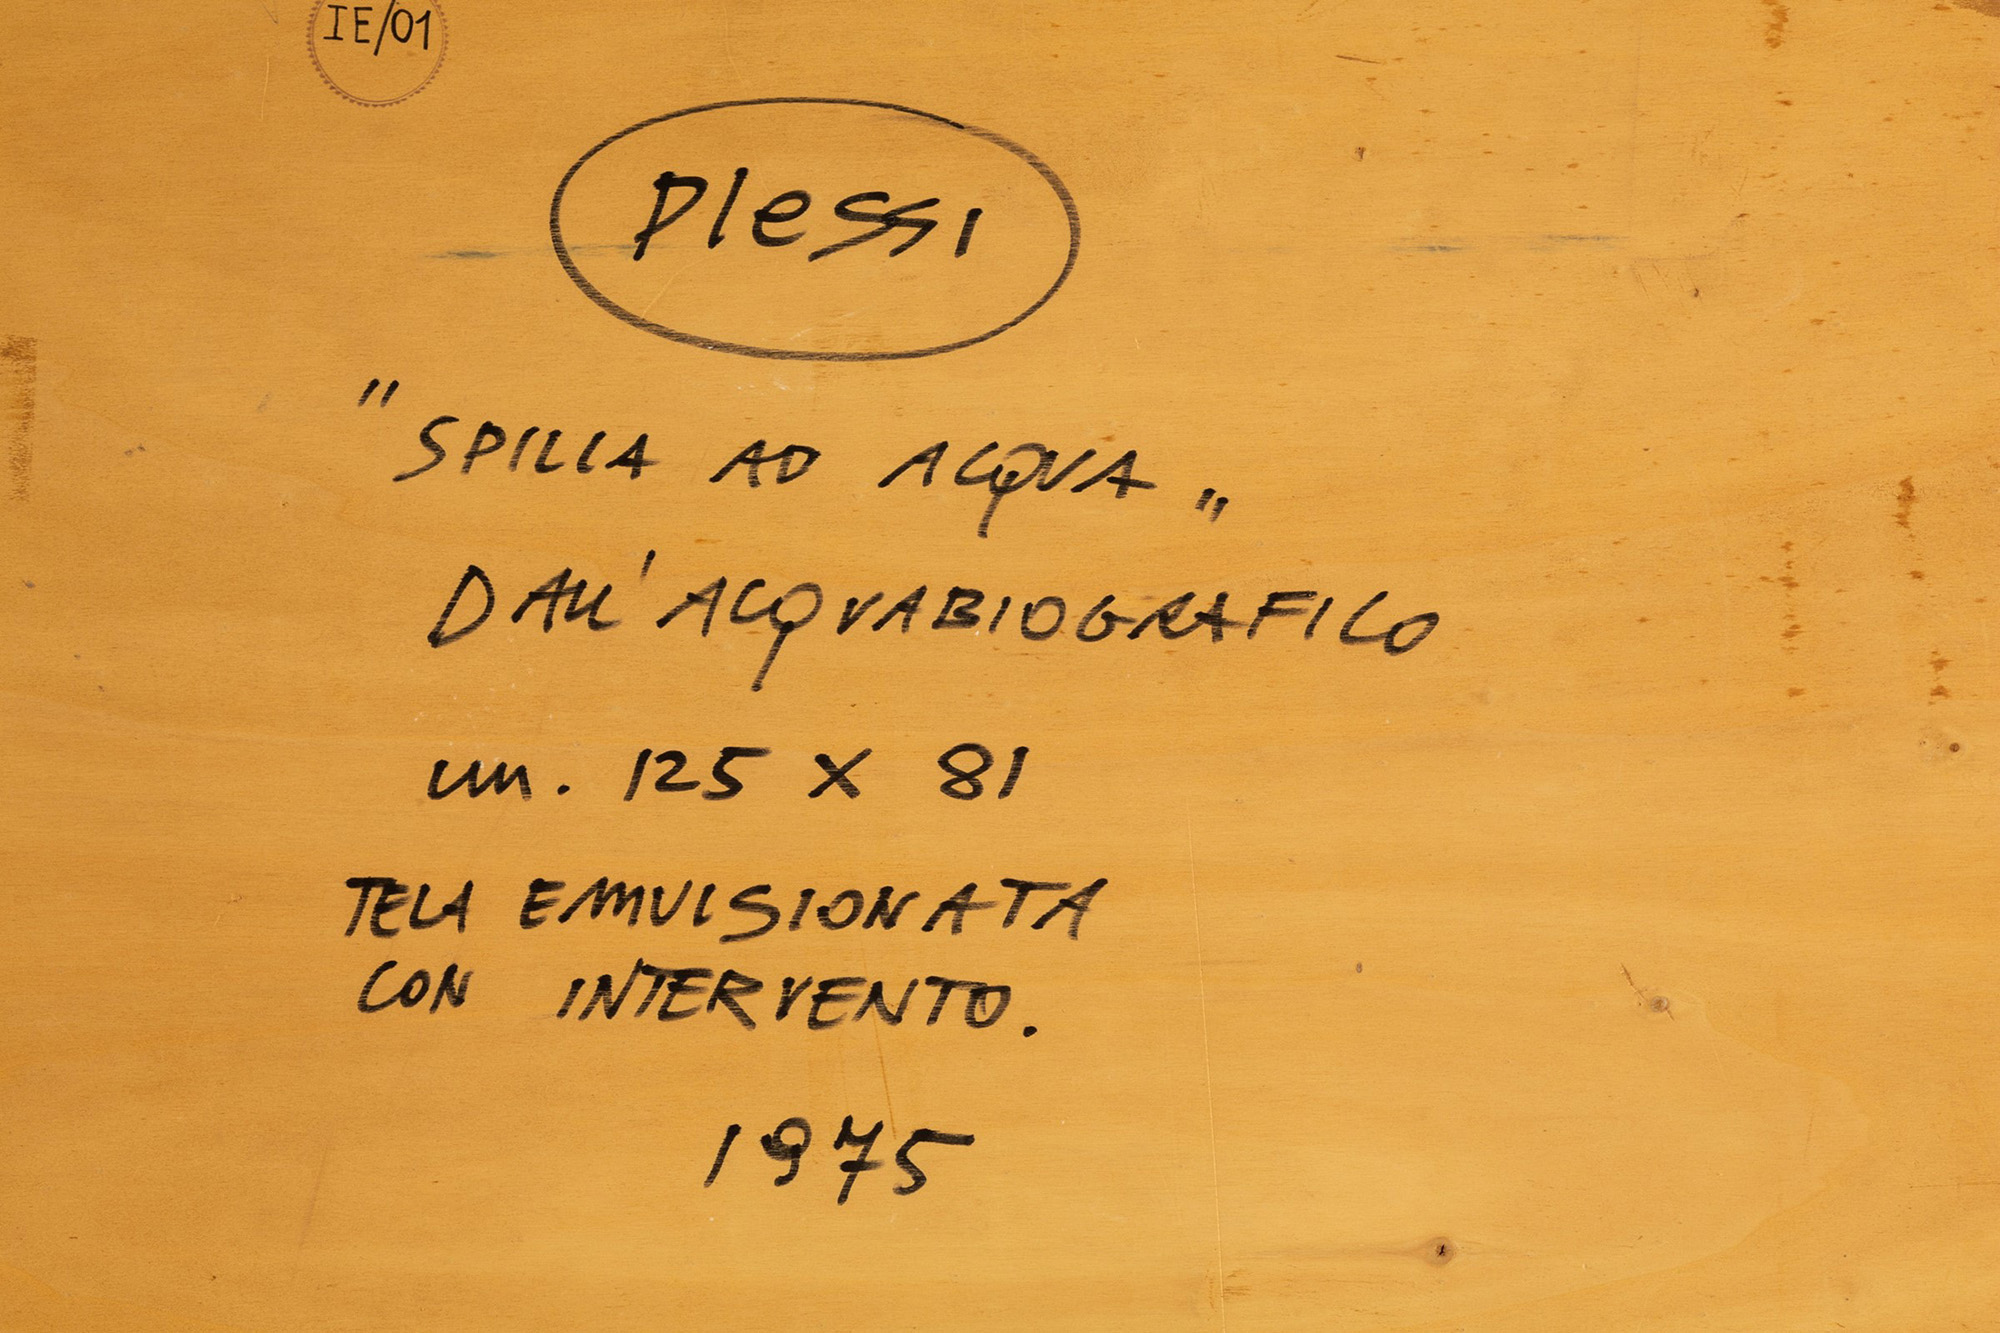 IE/01
Plessi
"SPILLA AD ACQUA"
DALL'ACQUABIOGRAFICO
cm. 125 X 81
TELA EMULSIONATA
CON INTERVENTO.
1975